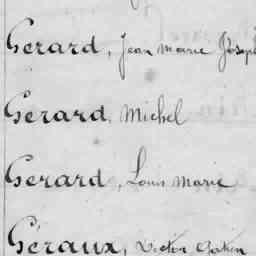 Gerard, Jean Marie Joseph
Gerard, Michel
Gerard, Louis Marie
Géraux, Victor